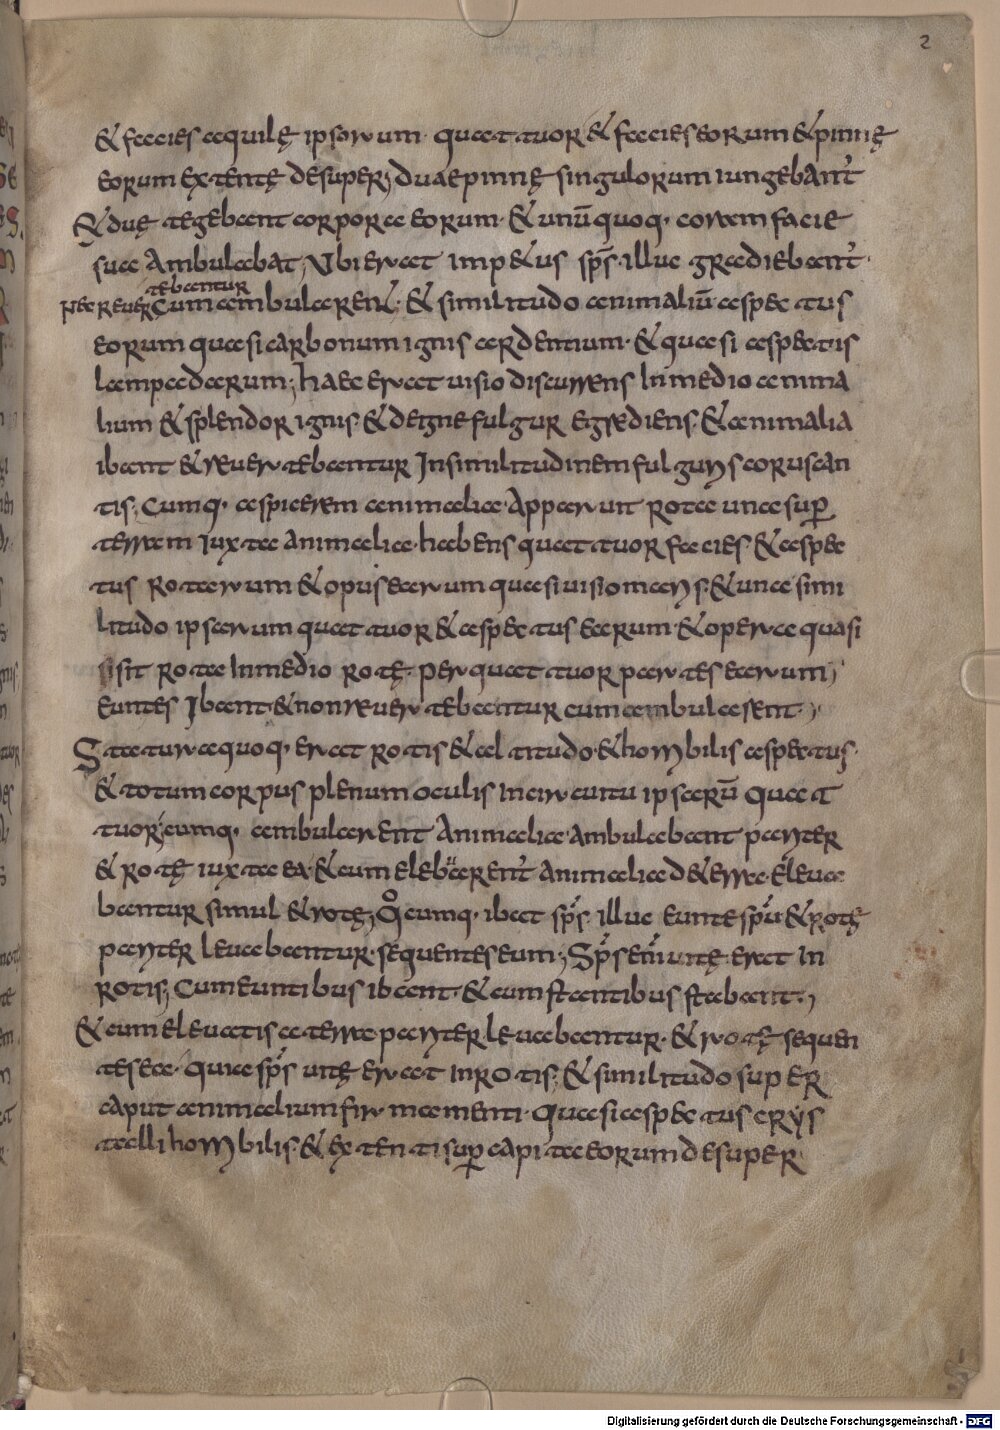 2
& facies aquilę ipsorum· quattuor & facies eorum & pinnę
eorum extentę desuper; duae pinnę singulorum iungebant᷑
& duę tegebant corpora eorum· & unū quoq· coram facie
sua ambulabat; Ubi erat imp&us sp̄s· illuc gradiebant᷑·
tebantur
nec reuer cum ambularent· & similitudo animaliū aspectus
eorum quasi carbonum ignis ardentium· & quasi aspectus
lampadarum; haec erat uisio discurrens In medio anima
lium & splendor ignis· & de igne fulgur egrediens· & animalia
ibant & reuertebantur In similitudinem fulguris coruscan
tis; Cumq· aspicerem animalia· apparuit rota una sup̱
terram iuxta animalia· habens quattuor facies & aspec
tus rotarum & opus earum quasi uisio maris· & una simi
litudo ipsarum quattuor & aspectus earum· & opera quasi
si sit rota In medio rotę· per quattuor partes earum;
euntes Ibant· & non reuertebantur cum ambularent·;
Statura quoq· erat rotis & altitudo· & horribilis aspectus·
& totum corpus plenum oculis In circuitu ipsarū quat
tuor; cumq· ambularent animalia· ambulabant pariter
& rotę iuxta ea· & cum eleuarent᷑ animalia de terra· eleua
bantur simul & rotę; Quocumq· ibat sp̄s· illuc eunte sp̄u & rotę
pariter leuabantur· sequentes eum; Sp̄s enim uitę erat In
rotis; Cum euntibus ibant· & cum stantibus stabant·;
& cum eleuatis a terra· pariter leuabantur· & rotę sequen
tes ea· quia sp̄s uitę erat In rotis· & similitudo super
caput animalium firmamenti· quasi aspectus cris
talli horribilis· & extenti sup̱ capita eorum desuper
Digitalisierung gefördert durch die Deutsche Forschungsgemeinschaft - DFG